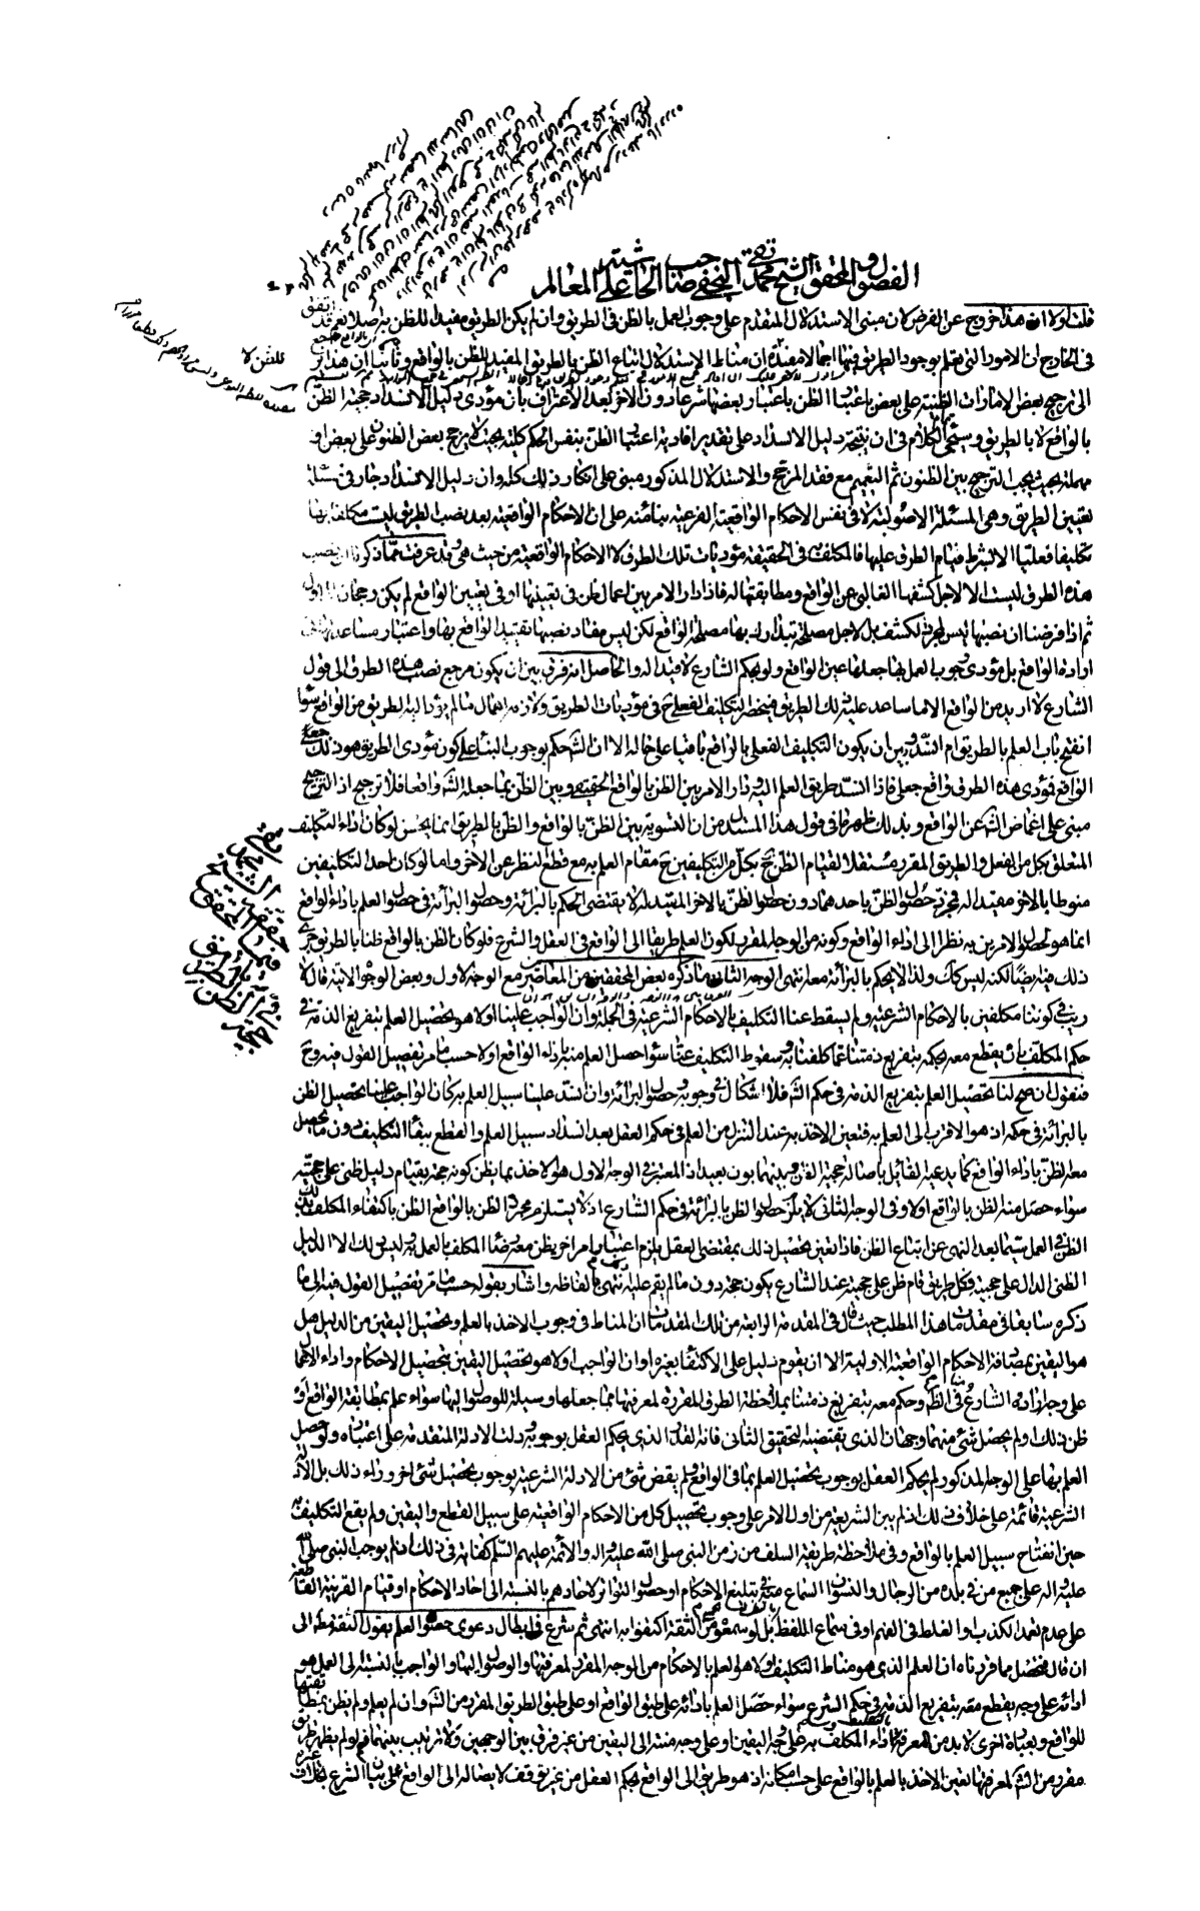 الفصول والمحقق الشيخ محمد تقي النجفي صاحب الحاشية على المعالم
قلت اولا ان هذا خروج عن الفرض لان مبنى الاستدلال المتقدم على وجوب العمل بالظن في الطريق وان لم يكن الطريق مفيدا للظن به اصلا نعم قد اتفق
في الخارج ان الامور التي نعلم بوجود الطريق فيها اجمالا مفيدة ان مناط الاستدلال اتباع الظن بالطريق المفيد للظن بالواقع وثانيا ان هذا يرجع
الى ترجيح بعض الامارات الظنية على بعض باعتبار الظن باعتبار بعضها شرعا دون الآخر بعد الاعتراف بان مؤدى دليل الانسداد حجية الظن
بالواقع لا بالطريق وسيجيء الكلام في ان نتيجة دليل الانسداد على تقدير افادته اعتبار الظن بنفس الحكم كلية بحيث لا يرجح بعض الظنون على بعض او
مهملة بحيث يجب الترجيح بين الظنون ثم التعميم مع فقد المرجح والاستدلال المذكور مبني على انكار ذلك كله وان دليل الانسداد جار في مسئلة
تعيين الطريق وهي المسئلة الاصولية لا في نفس الاحكام الواقعية الفرعية بناء منه على ان الاحكام الواقعية بعد نصب الطرق ليست مكلفا بها
تكليفا فعليا الا بشرط قيام الطرق عليها فالمكلف به في الحقيقة مؤديات تلك الطرق لا الاحكام الواقعية من حيث هي وقد عرفت مما ذكرنا ان نصب
هذه الطرق ليست الا لاجل كشفها الغالبي عن الواقع ومطابقتها له فاذا دار الامر بين اعمال ظن في تعيينها او في تعيين الواقع لم يكن رجحان للاول
ثم اذا فرضنا ان نصبها ليس لمجرد الكشف بل لاجل مصلحة يتدارك بها مصلحة الواقع لكن ليس مفاد نصبها تقييد الواقع بها واعتبار مساعدتها في
ارادة الواقع بل مؤدى وجوب العمل بها جعلها عين الواقع ولو بحكم الشارع لا قيدا له والحاصل انه فرق بين ان يكون مرجع نصب هذه الطرق الى قول
الشارع لا اريد من الواقع الا ما ساعد عليه ذلك الطريق فينحصر التكليف الفعلي ح في مؤديات الطريق ولازمه اهمال ما لم يؤد اليه الطريق من الواقع سواء
انفتح باب العلم بالطريق ام انسد وبين ان يكون التكليف الفعلي بالواقع باقيا على حاله الا ان الش حكم بوجوب البناء على كون مؤدى الطريق هو ذلك
الواقع فمؤدى هذه الطرق واقع جعلي فاذا انسد طريق العلم اليه ودار الامر بين الظن بالواقع الحقيقي وبين الظن بما جعله الش واقعا فلا ترجيح اذ الترجيح
مبني على اغماض الش عن الواقع وبذلك ظهر ما في قول هذا المستدل من ان التسوية بين الظن بالواقع والظن بالطريق انما يحسن لو كان اداء التكليف
المتعلق بكل من الفعل والطريق المقرر مستقلا لقيام الظن في كل من التكليفين ح مقام العلم به مع قطع النظر عن الآخر واما لو كان احد التكليفين
منوطا بالآخر مقيدا له فمجرد حصول الظن باحدهما دون حصول الظن بالآخر المقيد له لا يقتضي الحكم بالبرائة وحصول البرائة في حصول العلم باداء الواقع
انما هو لحصول الامرين به نظرا الى اداء الواقع وكونه من الوجه المقرر لكون العلم طريقا الى الواقع في العقل والشرع فلو كان الظن بالواقع ظنا بالطريق جرى
ذلك فيه ايضا لكنه ليس كك ولذا لا يحكم بالبرائة معه انتهى الوجه الثاني ما ذكره بعض المحققين من المعاصرين مع الوجه الاول وبعض الوجوه الاخر قال لا
ريب في كوننا مكلفين بالاحكام الشرعية ولم يسقط عنا التكليف بالاحكام الشرعية في الجملة وان الواجب علينا اولا هو تحصيل العلم بتفريغ الذمة في
حكم المكلف بان يقطع معه بحكمه بتفريغ ذمتنا عما كلفنا به وسقوط التكليف عنا سواء حصل العلم منه باداء الواقع اولا حسب ما مر تفصيل القول فيه وح
فنقول ان صح لنا تحصيل العلم بتفريغ الذمة في حكم الش فلا اشكال في وجوبه وحصول البرائة وان انسد علينا سبيل العلم به كان الواجب علينا تحصيل الظن
بالبرائة في حكمه اذ هو الاقرب الى العلم به فتعين الاخذ به عند التنزل من العلم في حكم العقل بعد انسداد سبيل العلم والقطع ببقاء التكليف دون ما يحصل
معه الظن باداء الواقع كما يدعيه القائل باصالة حجية الظن وبينهما بون بعيد اذ المعتبر في الوجه الاول هو الاخذ بما يظن كونه حجة بقيام دليل ظني على حجيته
سواء حصل منه الظن بالواقع اولا وفي الوجه الثاني لا يلزم حصول الظن بالبرائة في حكم الشارع اذ لا يستلزم مجرد الظن بالواقع الظن باكتفاء المكلف بذلك
الظن في العمل سيما بعد النهي عن اتباع الظن فاذا تعين تحصيل ذلك بمقتضى العقل يلزم اعتبار امر آخر يظن معه رضاء المكلف بالعمل به وليس ذلك الا الدليل
الظني الدال على حجيته فكل طريق قام ظن على حجيته عند الشارع يكون حجة دون ما لم يقم عليه انتهى بالفاظه واشار بقوله حسب ما مر تفصيل القول فيه الى ما
ذكره سابقا في مقدمات هذا المطلب حيث قال في المقدمة الرابعة من تلك المقدمات ان المناط في وجوب الاخذ بالعلم وتحصيل اليقين من الدليل هل
هو اليقين بمصادفة الاحكام الواقعية الاولية الا ان يقوم دليل على الاكتفاء بغيره او ان الواجب اولا هو تحصيل اليقين بتحصيل الاحكام واداء الاعمال
على وجه اراده الشارع في الظ وحكم معه بتفريغ ذمتنا بملاحظة الطرق المقررة لمعرفتها مما جعلها وسيلة للوصول اليها سواء علم بمطابقة الواقع او
ظن ذلك او لم يحصل شيء منهما وجهان الذي يقتضيه التحقيق الثاني فانه القدر الذي يحكم العقل بوجوبه ودلت الادلة المتقدمة على اعتباره ولو حصل
العلم بها على الوجه المذكور لم يحكم العقل بوجوب تحصيل العلم بما في الواقع ولم يقض شيء من الادلة الشرعية بوجوب تحصيل شيء آخر وراء ذلك بل الادلة
الشرعية قائمة على خلاف ذلك اذ لم يبن الشريعة من اول الامر على وجوب تحصيل كل من الاحكام الواقعية على سبيل القطع واليقين ولم يقع التكليف به
حين انفتاح سبيل العلم بالواقع وفي ملاحظة طريقة السلف من زمن النبي صلى الله عليه واله والائمة عليهم السلم كفاية في ذلك اذ لم يوجب النبي صلى الله
عليه واله على جميع من في بلده من الرجال والنسوان السماع منه في تبليغ الاحكام او حصول التواتر لآحادهم بالنسبة الى آحاد الاحكام او قيام القرينة القاطعة
على عدم تعمد الكذب او الغلط في الفهم او في سماع اللفظ بل لو سمعوه من الثقة اكتفوا به انتهى ثم شرع في ابطال دعوى حصول العلم بقول الثقة مط الى
ان قال فتحصل مما قررناه ان العلم الذي هو مناط التكليف اولا هو العلم بالاحكام من الوجه المقرر لمعرفتها والوصول اليها والواجب بالنسبة الى العمل هو
ادائه على وجه يقطع معه بتفريغ الذمة في حكم الشرع سواء حصل العلم بادائه على طبق الواقع او على طبق الطريق المقرر من الش وان لم يعلم ولم يظن بمطابقتها
للواقع وبعبارة اخرى لا بد من المعرفة باداء المكلف به على وجه اليقين او على وجه منته الى اليقين من غير فرق بين الوجهين ولا ترتيب بينهما ولو لم يظهر طريق
مقرر من الش لمعرفتها تعين الاخذ بالعلم بالواقع على حسب امكانه اذ هو طريق الى الواقع بحكم العقل من غير توقف لايصاله الى الواقع على بيان الشرع بخلاف غيره